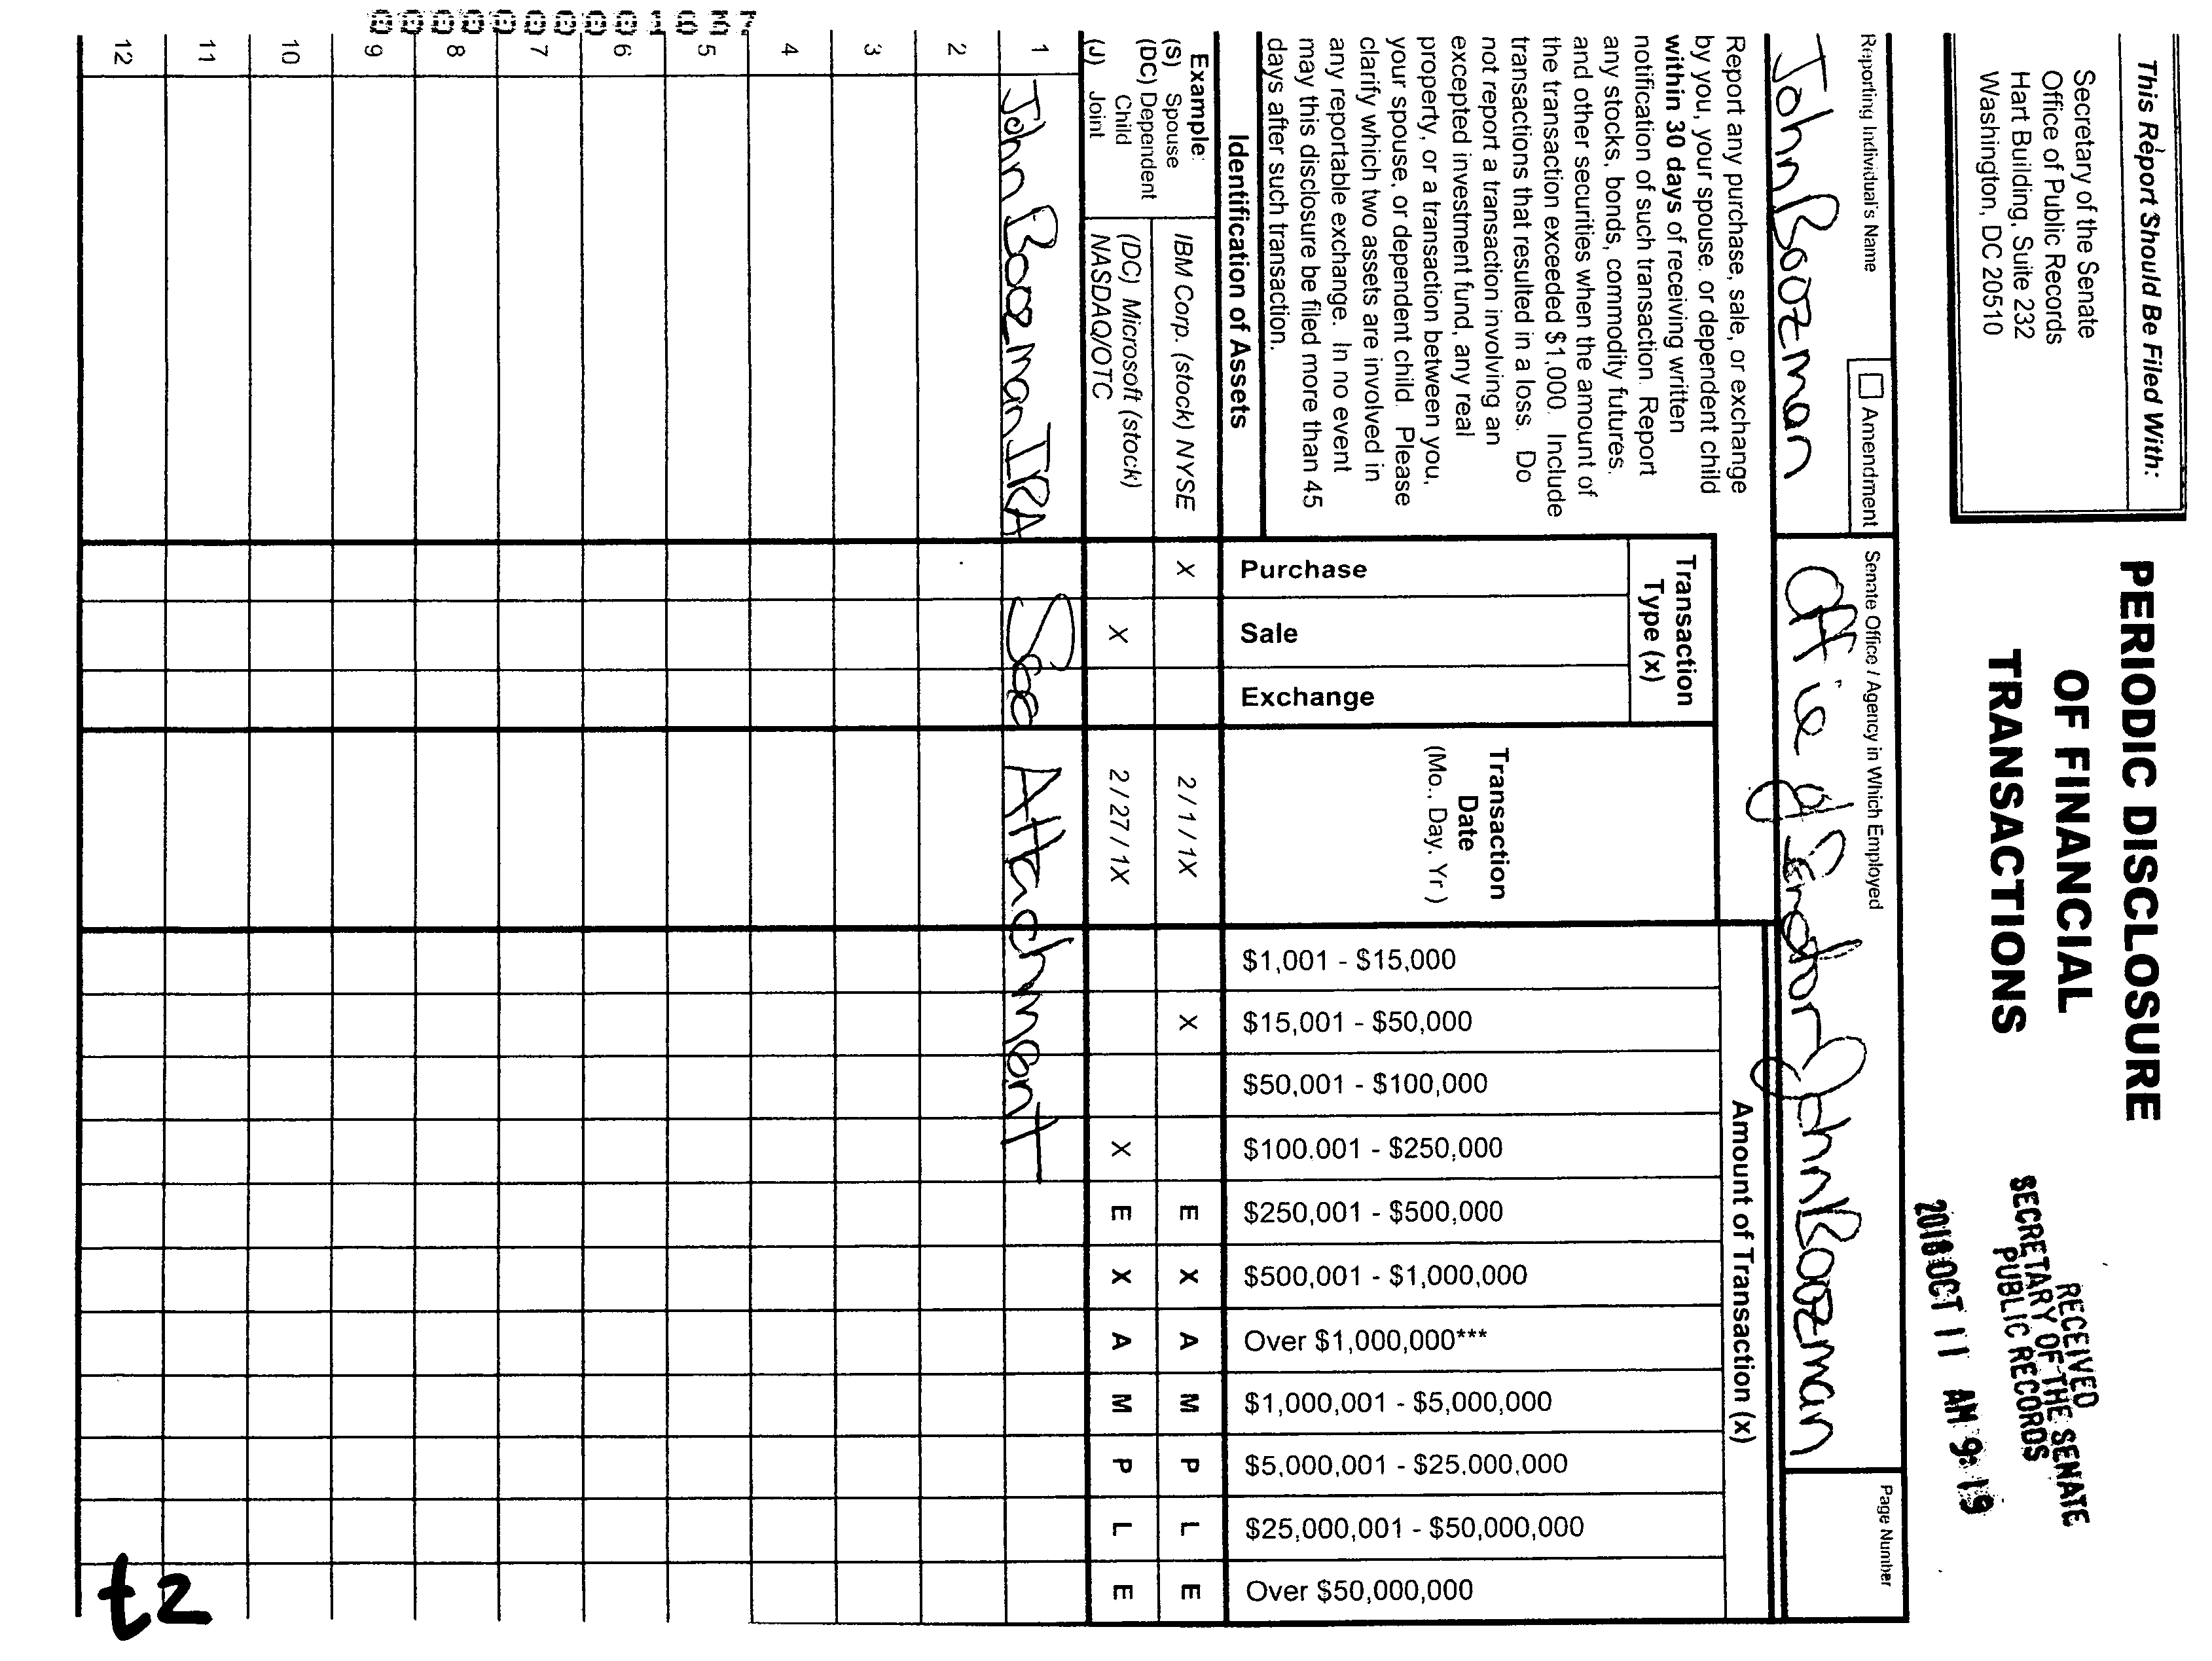 This Report Should Be Filed With:
Secretary of the Senate
Office of Public Records
Hart Building, Suite 232
Washington, DC 20510
PERIODIC DISCLOSURE
OF FINANCIAL
TRANSACTIONS
RECEIVED
SECRETARY OF THE SENATE
PUBLIC RECORDS
2018 OCT 11 AM 9:19
Reporting Individual's Name
Amendment
Senate Office / Agency in Which Employed
Page Number
John Boozman
Office of Senator John Boozman
Report any purchase, sale, or exchange
by you, your spouse, or dependent child
within 30 days of receiving written
notification of such transaction. Report
any stocks, bonds, commodity futures,
and other securities when the amount of
the transaction exceeded $1,000. Include
transactions that resulted in a loss. Do
not report a transaction involving an
excepted investment fund, any real
property, or a transaction between you,
your spouse, or dependent child. Please
clarify which two assets are involved in
any reportable exchange. In no event
may this disclosure be filed more than 45
days after such transaction.
Identification of Assets
Transaction
Type (x)
Purchase
Sale
Exchange
Transaction
Date
(Mo., Day, Yr)
Amount of Transaction (x)
$1,001 - $15,000
$15,001 - $50,000
$50,001 - $100,000
$100.001 - $250,000
$250,001 - $500,000
$500,001 - $1,000,000
Over $1,000,000***
$1,000,001 - $5,000,000
$5,000,001 - $25,000,000
$25,000,001 - $50,000,000
Over $50,000,000
Example:
(S) Spouse
(DC) Dependent
Child
(J) Joint
IBM Corp. (stock) NYSE X 2 / 1 / 1X X E X A M P L E
(DC) Microsoft (stock)
NASDAQ/OTC X 2 / 27 / 1X X E X A M P L E
1 John Boozman IRA See Attachment
2
3
4
5
6
7
8
9
10
11
12
t2